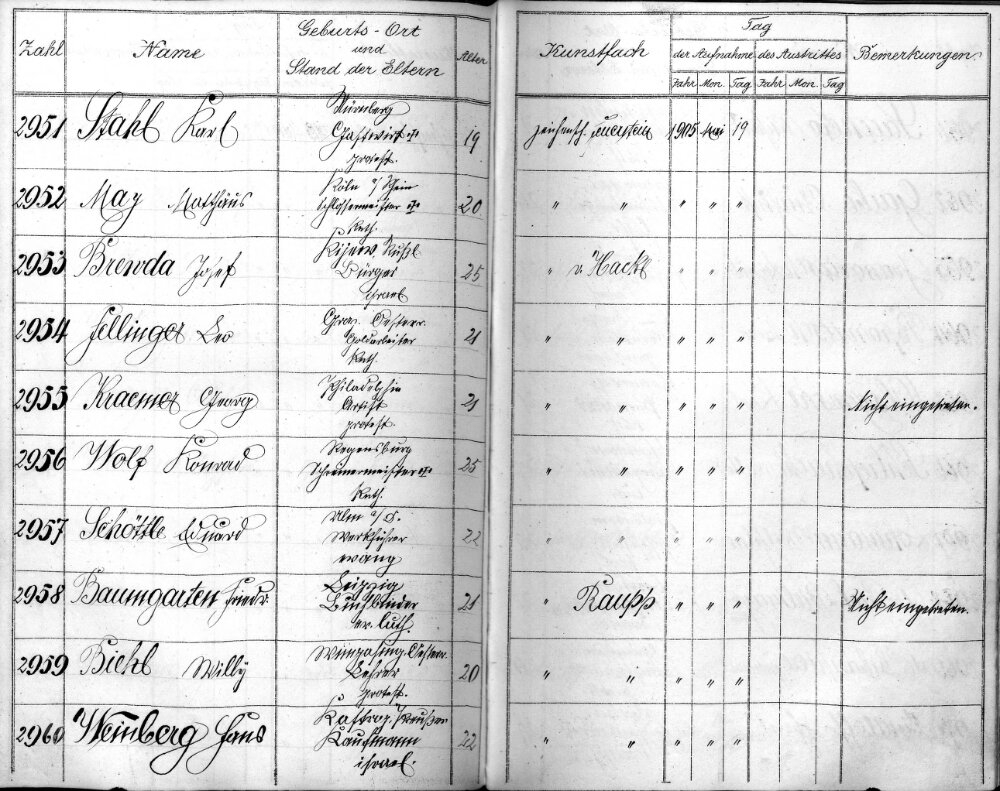 Zahl Name Geburts-Ort und Stand der Eltern Alter Kunstfach Tag der Aufnahme des Austrittes Bemerkungen.
Jahr Mon. Tag Jahr Mon. Tag
2951 Stahl Karl Nürnberg 19 Zeichensch. Feuerstein 1905 Mai 19
Gastwirt
protest.
2952 May Mathäus Köln a/Rhein 20 " " " " "
Schlossermeister
Kath.
2953 Brewda Josef Rußl. 25 " v. Hackl " " "
Bürger
israel
2954 Fellinger Leo Graz. Oesterr. 21 " " " " "
Kath.
2955 Kraemer Georg Philadelphia 21 " " " " " Nicht eingetreten.
Artist
protest.
2956 Wolf Konrad Regensburg 25 " " " " "
Schreinermeister
Kath.
2957 Schöttle Eduard Ulm a/D. 22 " " " " "
Werkführer
evang
2958 Baumgarten Friedr. Leipzig 21 " Raupp " " " Nicht eingetreten.
Buchbinder
ev. luth.
2959 Biehl Willy Oesterr. 20 " " " " "
Lehrer
protest.
2960 Weinberg Hans Preußen 22 " "
Kaufmann
israel.